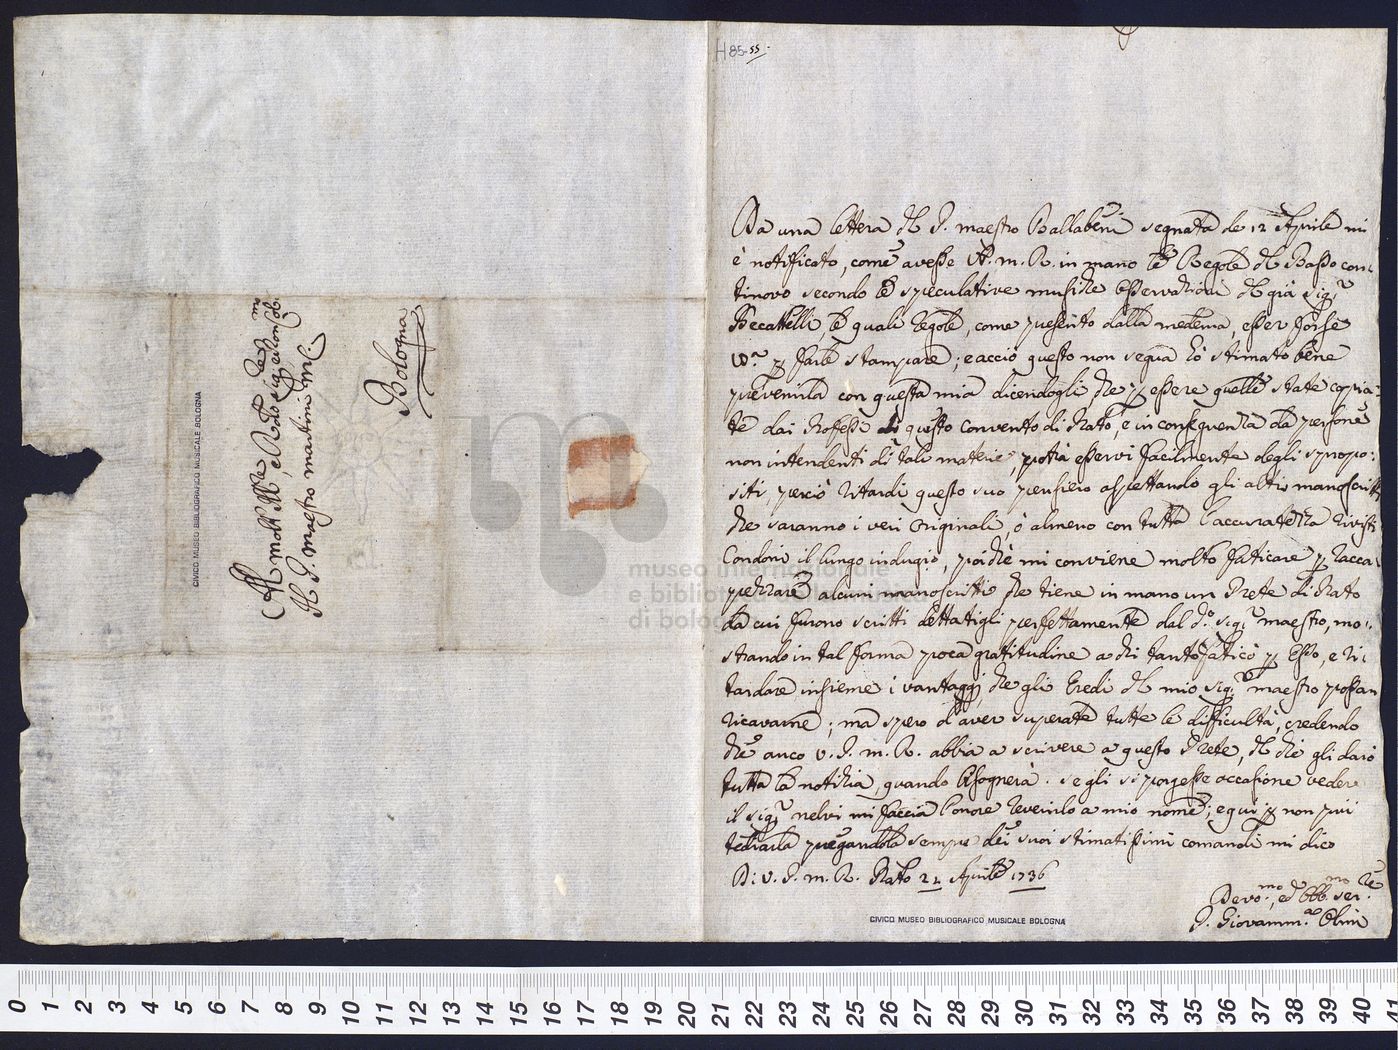 H 85-55.
Da una lettera del P. maestro Ballabeni segnata de 12 Aprile mi
è notificato, come avesse V. P. m. R. in mano le Regole del Basso con-
tinovo secondo le speculative musiche osservazioni del già Sig.r
Becattelli, le quali regole, come presento dalla medema, esser forse
p farle stampare; e acciò questo non segua hò stimato bene
prevenirla con questa mia dicendogli che p essere quelle state copia-
te dai Professi di questo convento di Prato, e in conseguenza da persone
non intendenti di tali materie, potria esservi facilmente degli spropo-
siti, perciò ritardi questo suo pensiero aspettando gli altri manoscritti
che saranno i veri originali, ò almeno con tutta l'accuratezza rivisti
Condoni il lungo indugio, poiche mi conviene molto faticare p racca-
pezzare alcuni manoscritti che tiene in mano un Prete di Prato
da cui furono scritti dettatigli perfettamente dal d.o sig.r maestro, mo-
strando in tal forma poca gratitudine a chi tanto faticò p Esso, e ri-
tardare insieme i vantaggi che gli Eredi del mio sig.r maestro possan
ricavarne; ma spero d'aver superate tutte le difficultà, credendo
che anco v. P. m. R. abbia a scrivere a questo Prete, del che gli darò
tutta la notizia, quando bisognerà. Se gli si porgesse occasione vedere
il sig.r nelvi mi faccia l'onore reverirlo a mio nome; e qui p non più
tediarla pregandola sempre dei suoi stimatissimi comandi mi dico
Di v. P. m. R. Prato 22 Aprile 1736
Devo.mo, ed Obb.mo ser.re
F. Giovamm.a
CIVICO MUSEO BIBLIOGRAFICO MUSICALE BOLOGNA
Al molt' Ill.re, e Rdo Sig.
Il P. maestro martini
Bologna
CIVICO MUSEO BIBLIOGRAFICO MUSICALE BOLOGNA
museo internazionale
e biblioteca della musica
di bologna
0 1 2 3 4 5 6 7 8 9 10 11 12 13 14 15 16 17 18 19 20 21 22 23 24 25 26 27 28 29 30 31 32 33 34 35 36 37 38 39 40 41